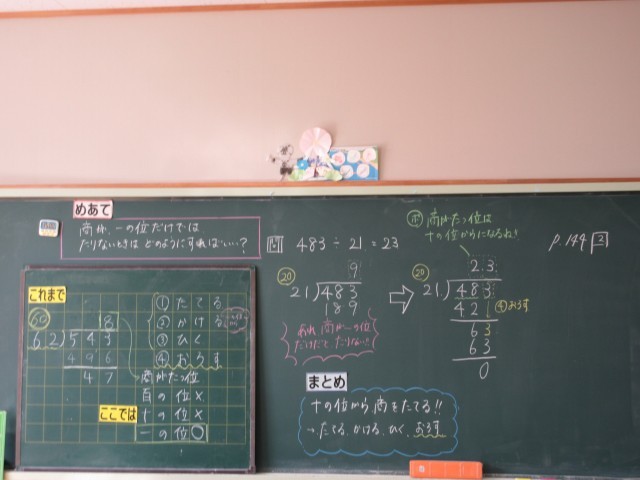 めあて
商が、一の位だけでは
たりないときは どのようにすればいい?
これまで
60
8
62)543
496
47
① たてる
② かける
③ ひく
④ おろす
商がたつ位
百の位×
ここでは
十の位×
一の位○
問 483÷21=23
20
9
21)483
189
あれ、商が一の位
だけだと たりない!!
⇨
商がたつ位は
十の位からになるね!
20
23
21)483
421
④おろす
63
63
0
まとめ
十の位から、商をたてる!!
→たてる、かける、ひく、おろす
p.144 2